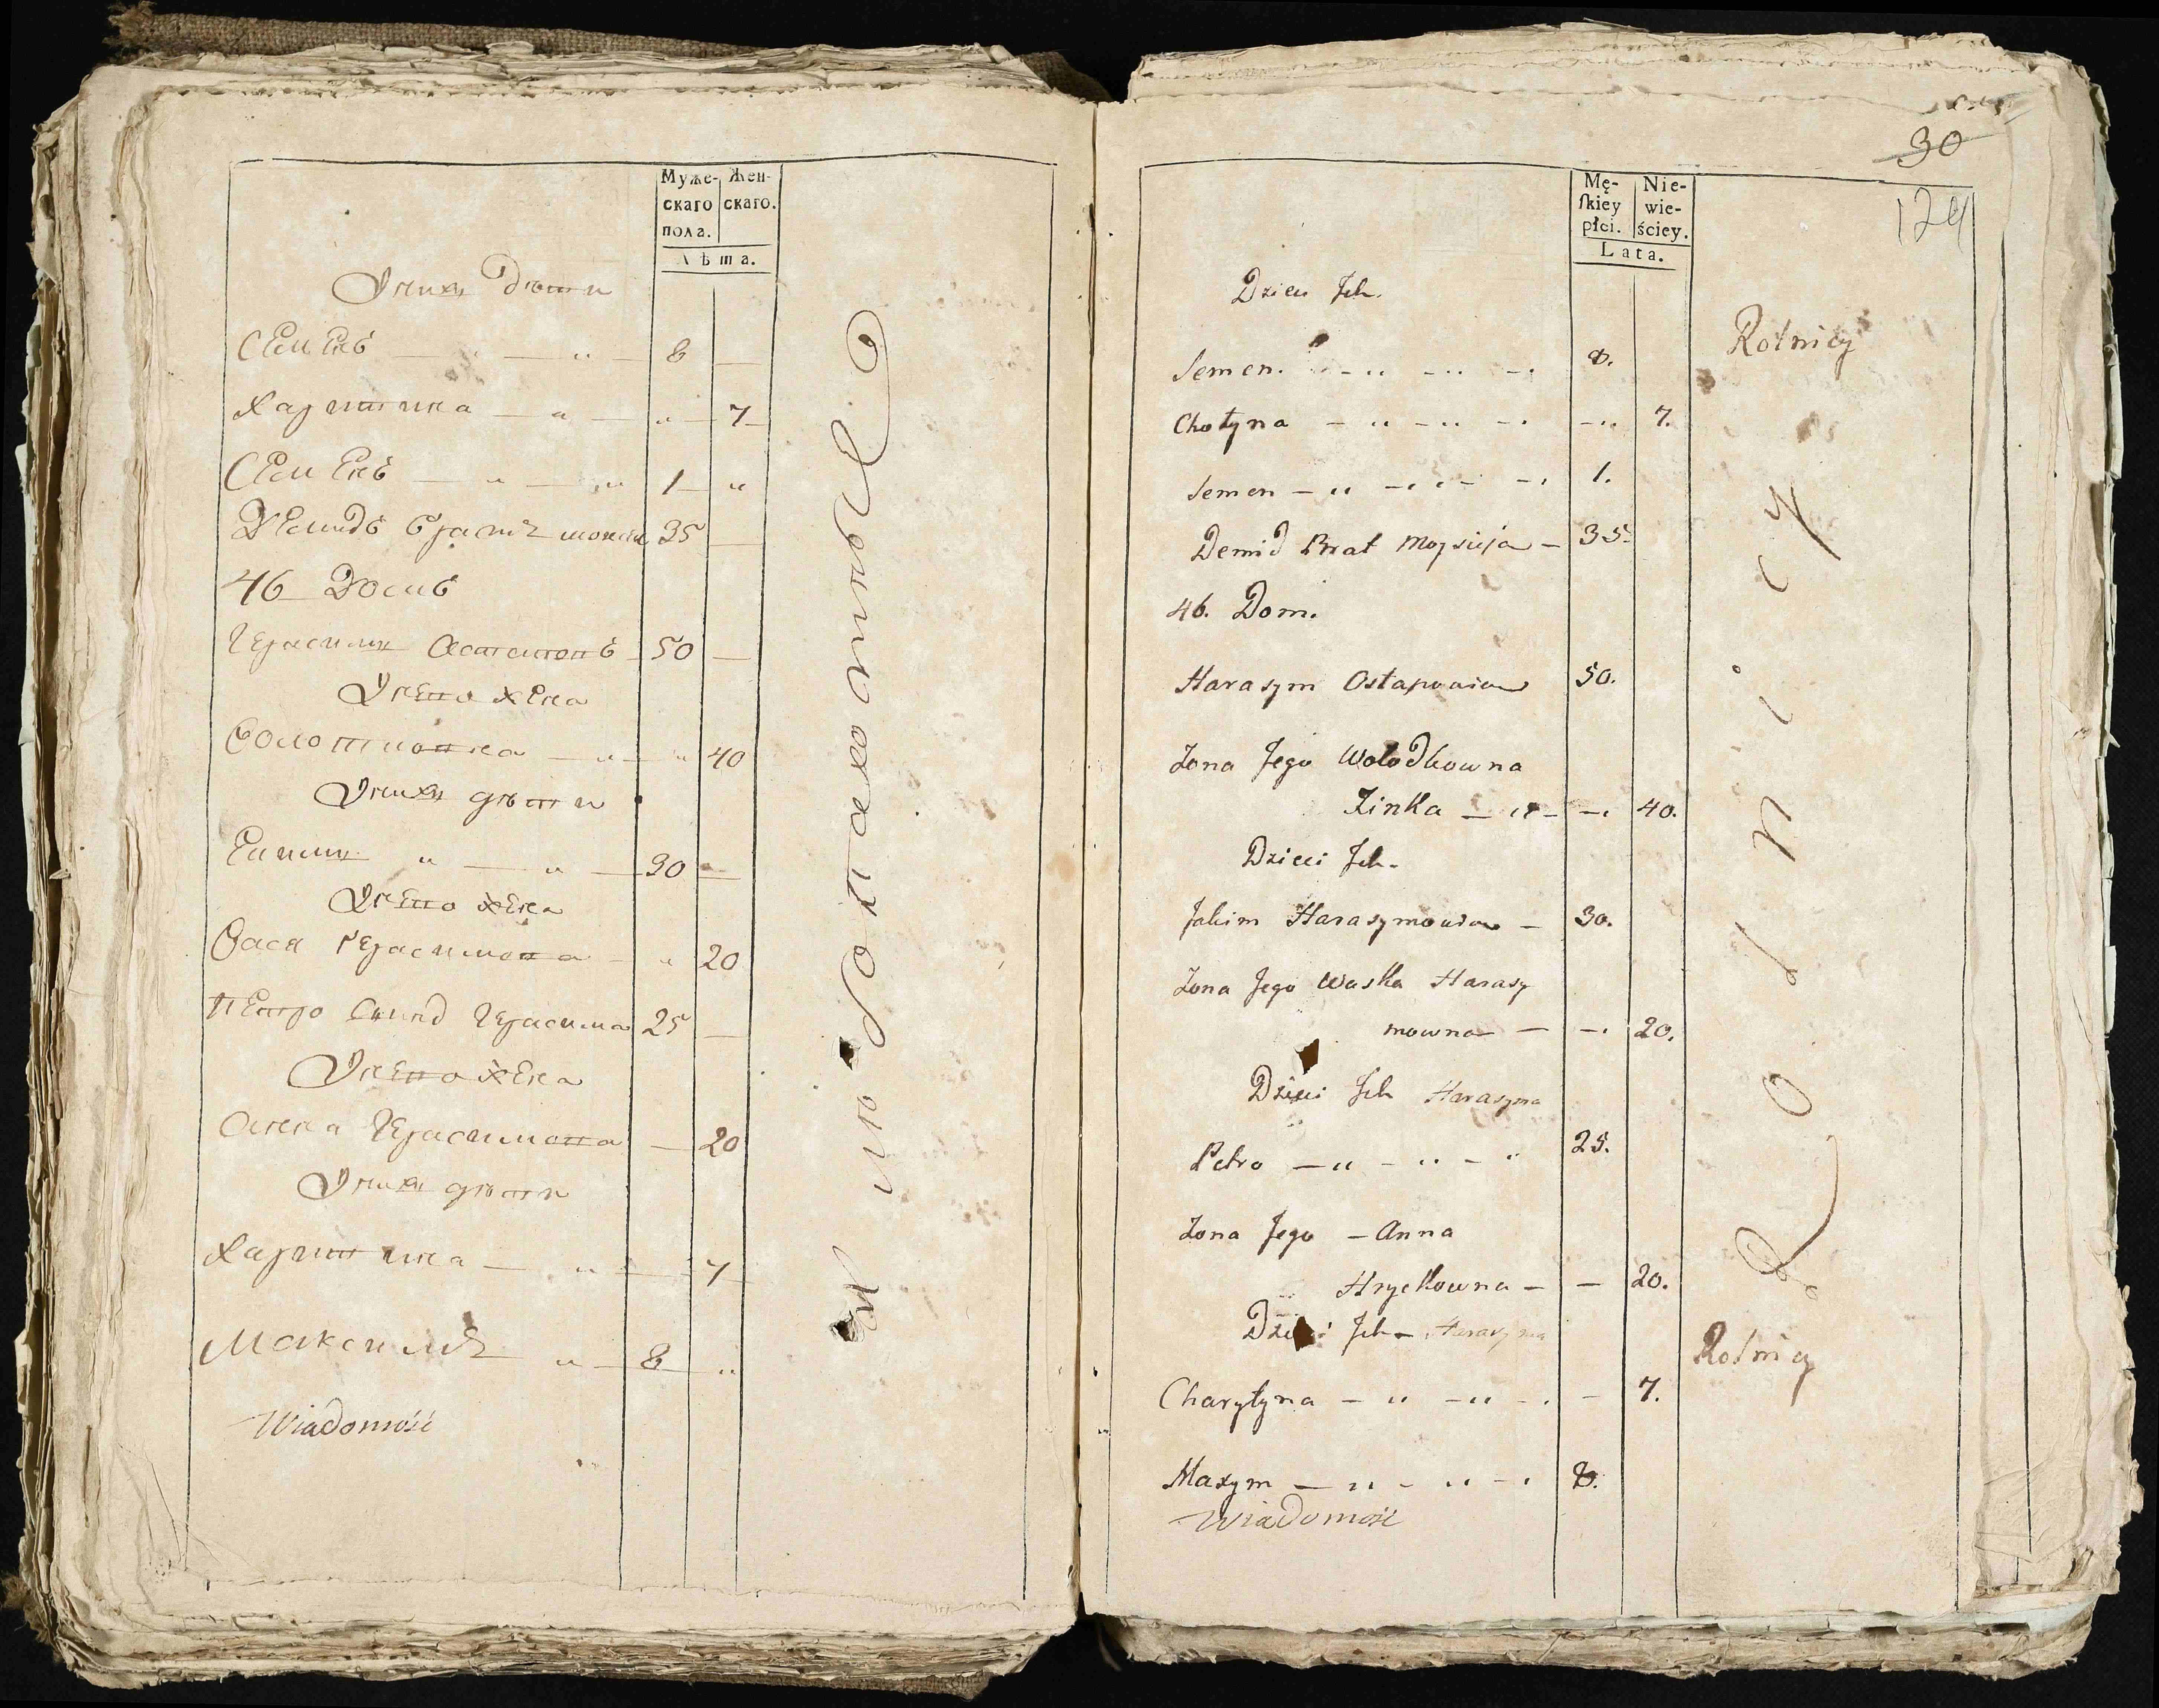 Муже-
скаго
пола.
Жен-
скаго.
Лѣта.
Ихъ дѣти
Семенъ — „ — „ — 8 —
Харитина — „ — „ — 7
Семенъ — „ — „ 1 — „
Демидъ братъ 35 —
46 Домъ
Герасимъ 50 —
Его жена
— „ — „ 40
Ихъ дѣти
Екимъ „ — „ — 30 —
Его жена
Вася Герасимова — „ 20
Петро Герасима 25 —
Его жена
Анна Герасимова — 20
Ихъ дѣти
Харитина — „ — 7
Максимъ „ — 8 — „
Wiadomość
30
124
Mę-
ſkiey
płci.
Nie-
wie-
ściey.
Lata.
Dzieci Ich.
Rolnicy
Semen. — „ — „ — 8.
Chotyna — „ — „ — — „ 7.
Semen — „ — „ — 1.
Demid Brat Moysieja — 35.
46. Dom.
Harasym Ostapowicz 50.
Żona Jego Wołodkowna
Zinka — „ — — 40.
Dzieci Ich.
Jakim Harasymowicz — 30.
Żona Jego Waska Harasy
mowna — — 20.
Dzieci Ich Harasyma
Petro — „ — „ — „ 25.
Żona Jego — Anna
Hryckowna — — 20.
Dzieci Ich — Harasyma
Rolnicy
Charytyna — „ — „ — — 7.
Maxym — „ — „ — 8.
Wiadomość
Rolnicy